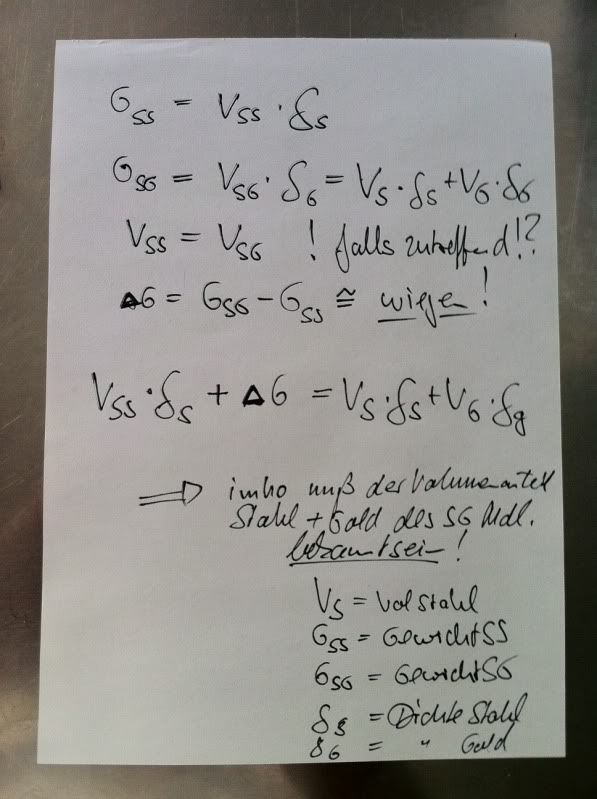 G_SS = V_SS · δ_S
G_SG = V_SG · δ_G = V_S · δ_S + V_G · δ_G
V_SS = V_SG ! falls zutreffend!?
ΔG = G_SG - G_SS ≅ wiegen!
V_SS · δ_S + ΔG = V_S · δ_S + V_G · δ_g
⇒ imho muß der Volumenanteil
Stahl + Gold des SG Mdl.
bekannt sein!
V_S = Vol Stahl
G_SS = Gewicht SS
G_SG = Gewicht SG
δ_S = Dichte Stahl
δ_G = " Gold